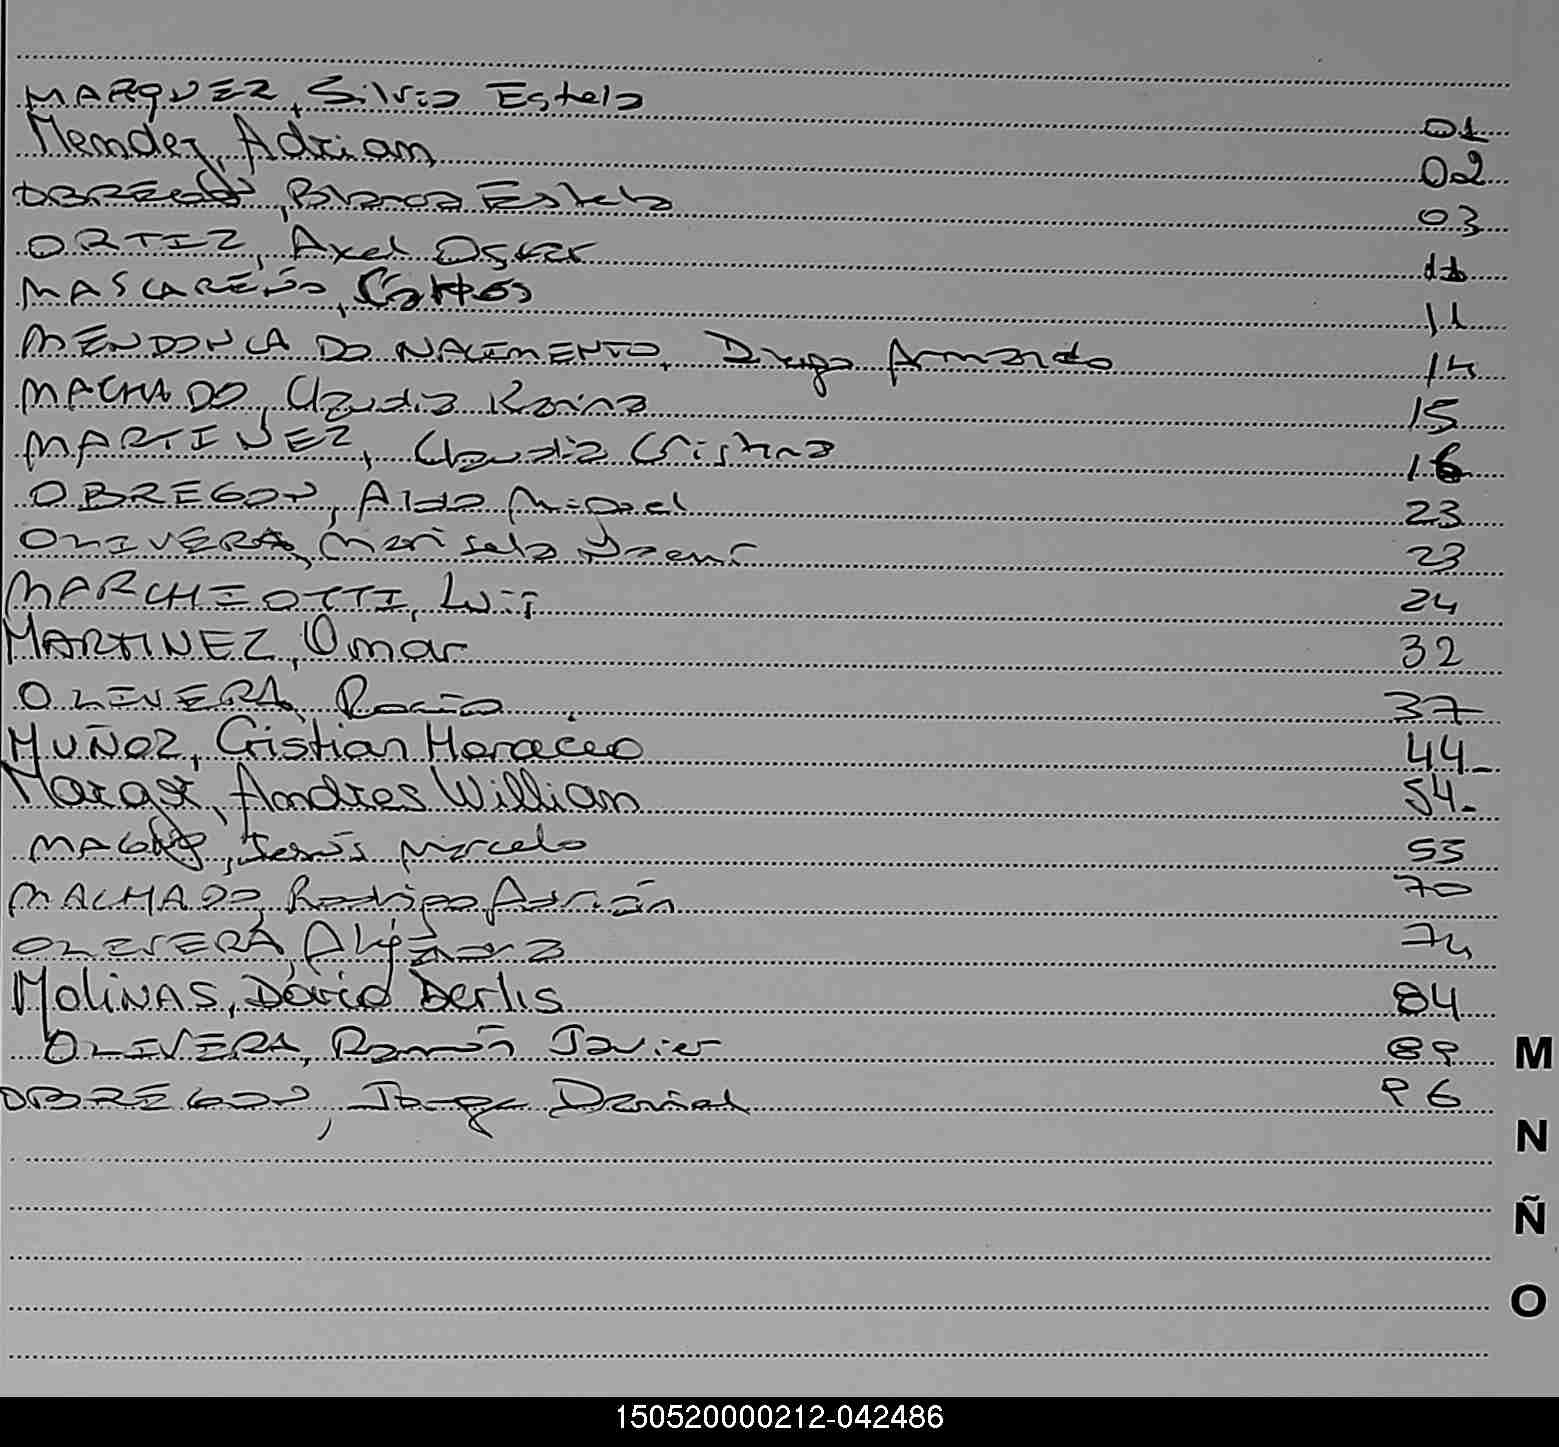 MARQUEZ, Silvia Estela 01
Mendez, Adrian 02
OBREGON, Blanca Estela 03
ORTIZ, Axel Oskar 11
MASCAREÑO, Carlos 11
MENDONCA DO NACIMENTO, Diego Armando 14
MACHADO, Claudia Karina 15
MARTINEZ, Claudia Cristina 16
OBREGON, Aldo Miguel 23
OLIVERA, Marisela Noemí 23
MARCHEOTTI, Luis 24
MARTINEZ, Omar 32
OLIVERA, Rocío 37
MUÑOZ, Cristian Horaceo 44
Andres Willian 54
Jesús Marcelo 53
MACHADO, Rodrigo Adrián 70
OLIVERA, Alejandra 74
MOLINAS, David Derlis 84
OLIVERA, Ramón Javier 89
OBREGON, Jorge Daniel 96
M
N
Ñ
O
150520000212-042486